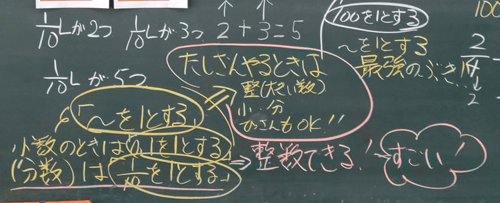 1/10Lが2つ 1/10Lが3つ 2+3=5
1/10Lが5つ
100を1とする
100
〜を1とする
最強のぶき!!
2
2
たしざんやるときは
整(大きい数)
小 分
ひっさんもOK!!
「〜を1とする」
小数のときは0.1を1とする
(分数)は「1/10を1とする」
整数できる!
すごい!!